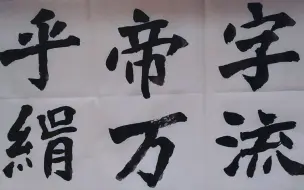 字流
帝万
乎絹